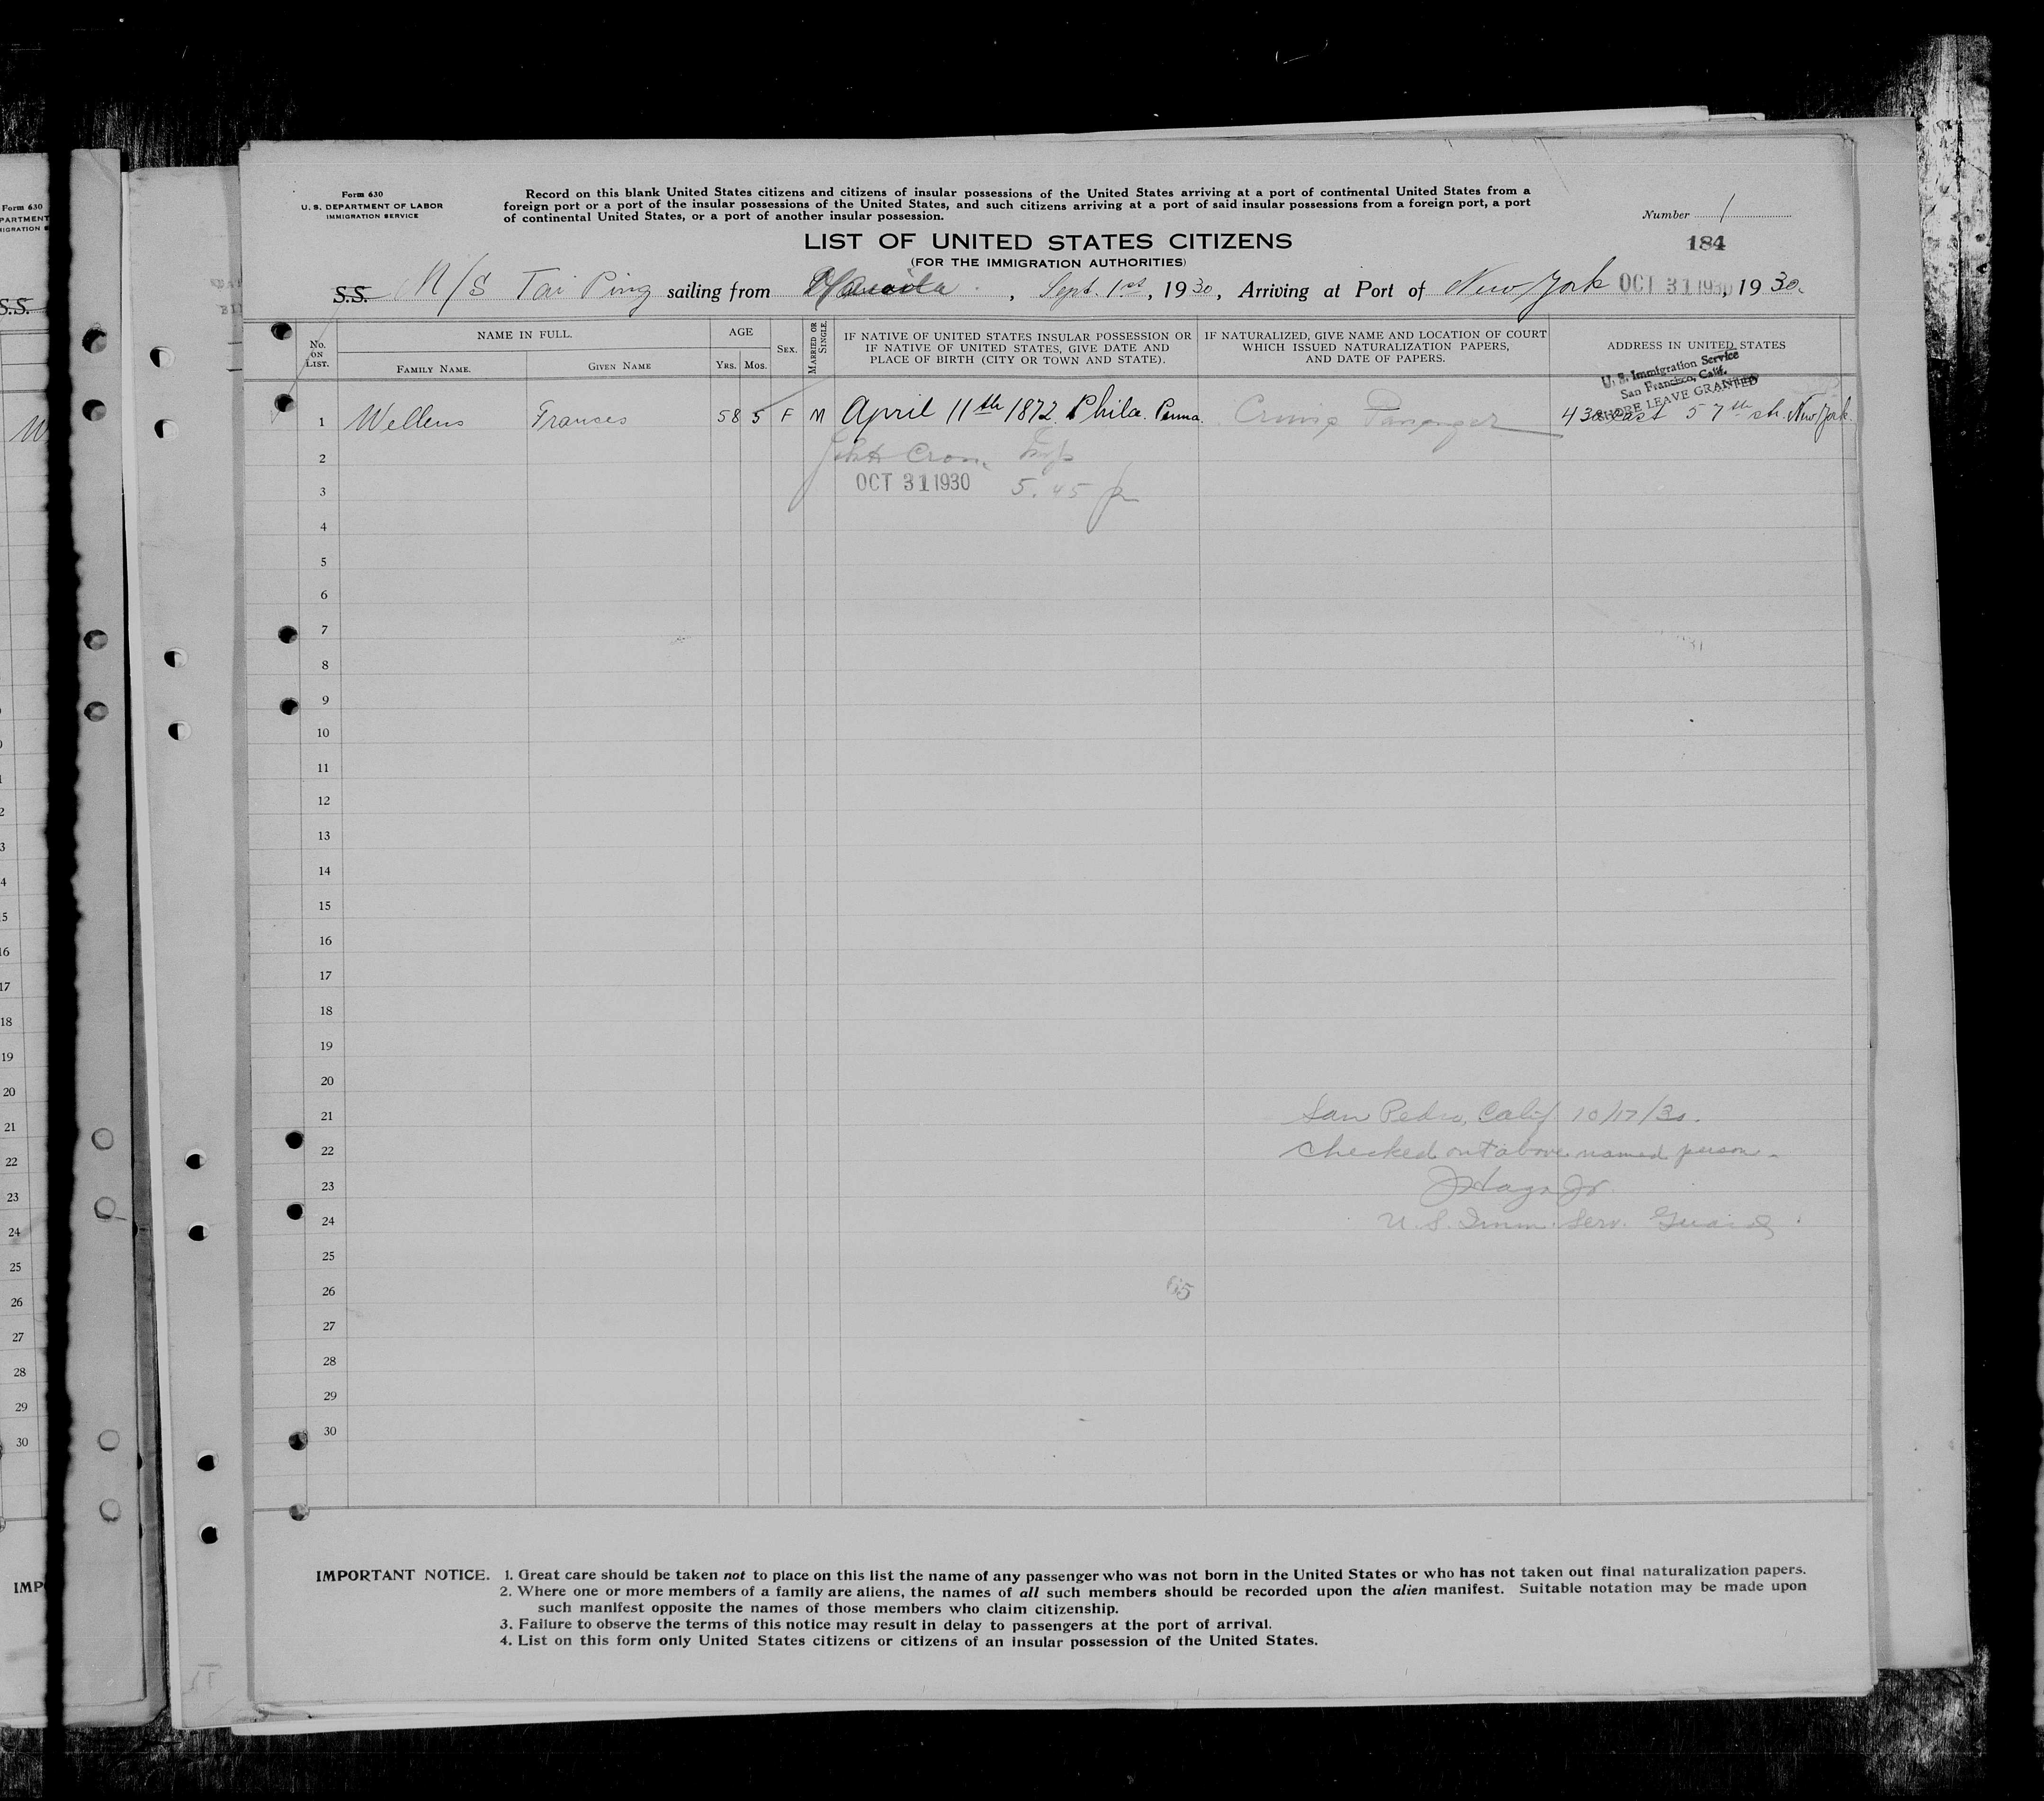 Form 630
U. S. DEPARTMENT OF LABOR
IMMIGRATION SERVICE
Record on this blank United States citizens and citizens of insular possessions of the United States arriving at a port of continental United States from a
foreign port or a port of the insular possessions of the United States, and such citizens arriving at a port of said insular possessions from a foreign port, a port
of continental United States, or a port of another insular possession.
Number 1
184
LIST OF UNITED STATES CITIZENS
(FOR THE IMMIGRATION AUTHORITIES)
S.S. M/S Tai Ping sailing from Manila, Sept. 1st, 1930, Arriving at Port of New York OCT 31 1930, 1930.
No. ON LIST.
NAME IN FULL.
FAMILY NAME.
GIVEN NAME
AGE
YRS.
MOS.
SEX.
MARRIED OR SINGLE.
IF NATIVE OF UNITED STATES INSULAR POSSESSION OR
IF NATIVE OF UNITED STATES, GIVE DATE AND
PLACE OF BIRTH (CITY OR TOWN AND STATE).
IF NATURALIZED, GIVE NAME AND LOCATION OF COURT
WHICH ISSUED NATURALIZATION PAPERS,
AND DATE OF PAPERS.
ADDRESS IN UNITED STATES
U. S. Immigration Service
San Francisco, Calif.
SHORE LEAVE GRANTED
1 Wellens Frances 58 5 F M April 11th 1872 Phila. Penna. Cruise Passenger East 57th str. New York.
2 Insp
3 OCT 31 1930 5.45 p
4
5
6
7
8
9
10
11
12
13
14
15
16
17
18
19
20
21 San Pedro, Calif 10/17/30.
22 Checked out above named person -
23
24 U. S. Imm. Serv. Guard
25
26 65
27
28
29
30
IMPORTANT NOTICE. 1. Great care should be taken not to place on this list the name of any passenger who was not born in the United States or who has not taken out final naturalization papers.
2. Where one or more members of a family are aliens, the names of all such members should be recorded upon the alien manifest. Suitable notation may be made upon
such manifest opposite the names of those members who claim citizenship.
3. Failure to observe the terms of this notice may result in delay to passengers at the port of arrival.
4. List on this form only United States citizens or citizens of an insular possession of the United States.